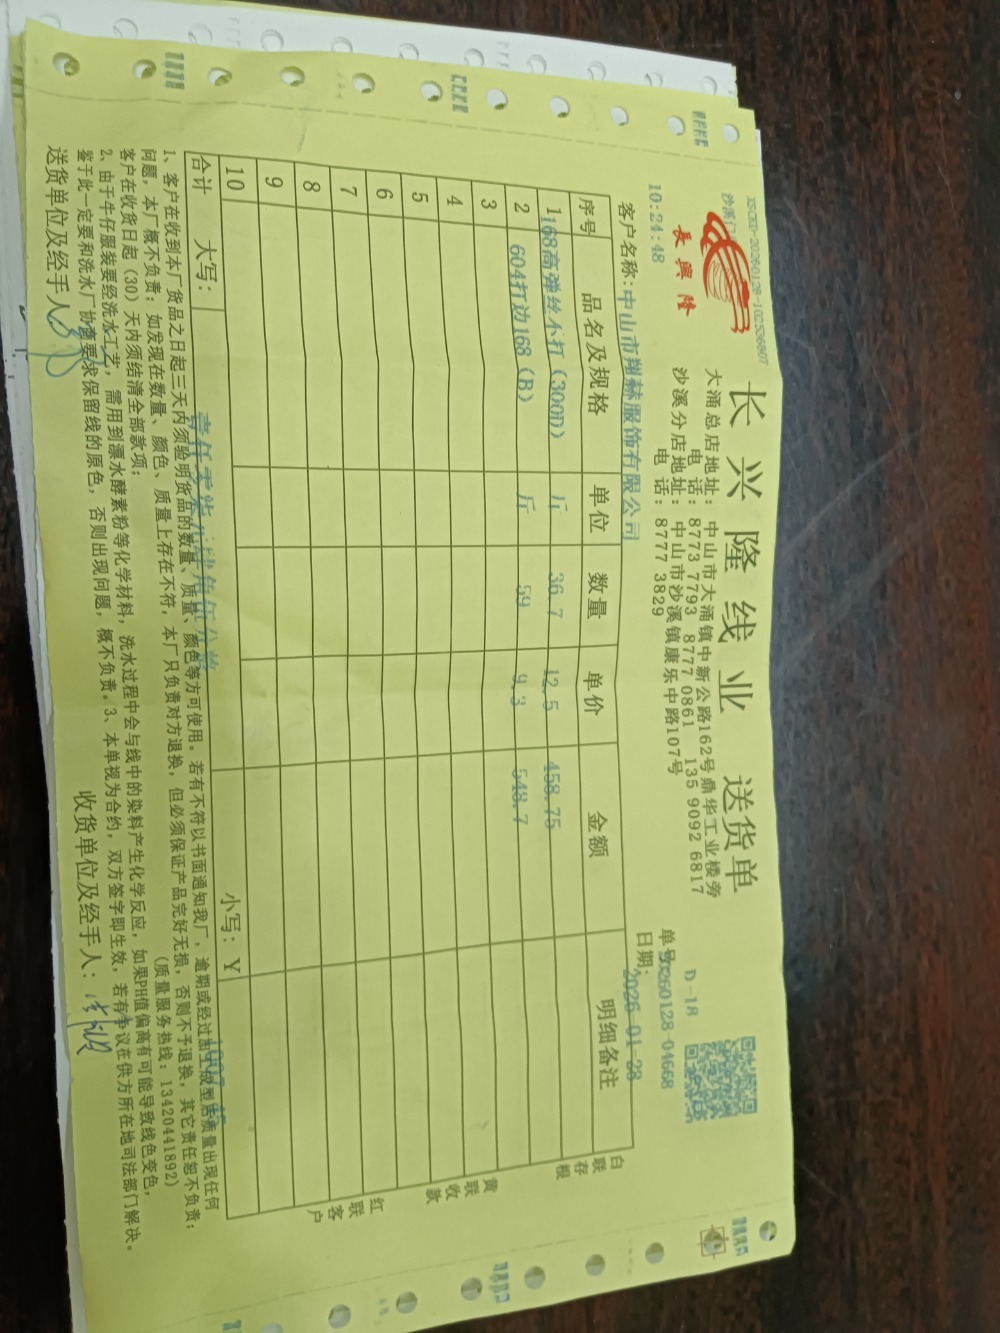 XSCKD-20260128-1025366807
沙溪门
長興隆
10:24:48
长兴隆线业 送货单
大涌总店地址：中山市大涌镇中新公路162号鼎华工业楼旁
电话：8773 7793 8777 0861 135 9092 6817
沙溪分店地址：中山市沙溪镇康乐中路107号
电话：8777 3829
D-1R
单号：260128-04668
日期：2026-01-28
客户名称：中山市翔赫服饰有限公司
序号 品名及规格 单位 数量 单价 金额 明细备注
1 168高弹丝不打（300D） 斤 36.7 12.5 458.75
2 604打边168（B） 斤 59 9.3 548.7
3
4
5
6
7
8
9
10
合计 大写：壹仟零柒元肆角伍分整 小写：￥1007.45
白联存根
黄联收款
红联客户
1、客户在收到本厂货品之日起三天内须验明货品的数量、质量、颜色等方可使用。若有不符以书面通知我厂，逾期或经过加工成型后质量出现任何
问题，本厂概不负责；如发现在数量、颜色、质量上存在不符，本厂只负责对方退换，但必须保证产品完好无损，否则不予退换，其它责任恕不负责；
客户在收货日起（30）天内须结清全部款项； （质量服务热线：13420441892）
2、由于牛仔服装要经洗水工艺，需用到漂水酵素粉等化学材料，洗水过程中会与线中的染料产生化学反应，如果PH值偏高有可能导致线色变色，
鉴于此一定要和洗水厂协商要求保留线的原色，否则出现问题，概不负责。3、本单视为合约，双方签字即生效，若有争议在供方所在地司法部门解决。
送货单位及经手人： 收货单位及经手人：